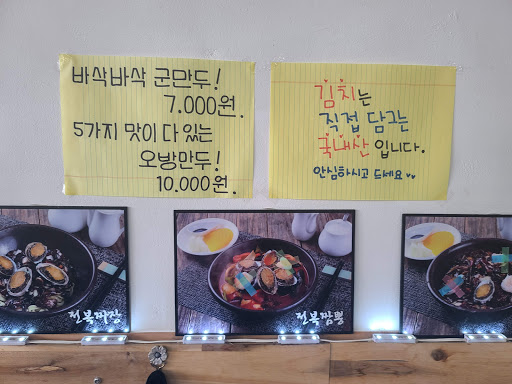 바삭바삭 군만두!
7.000원.
5가지 맛이 다 있는
오방만두!
10.000원.
김치는
직접 담구는
국내산 입니다.
안심하시고 드세요
전복짜장
전복짬뽕